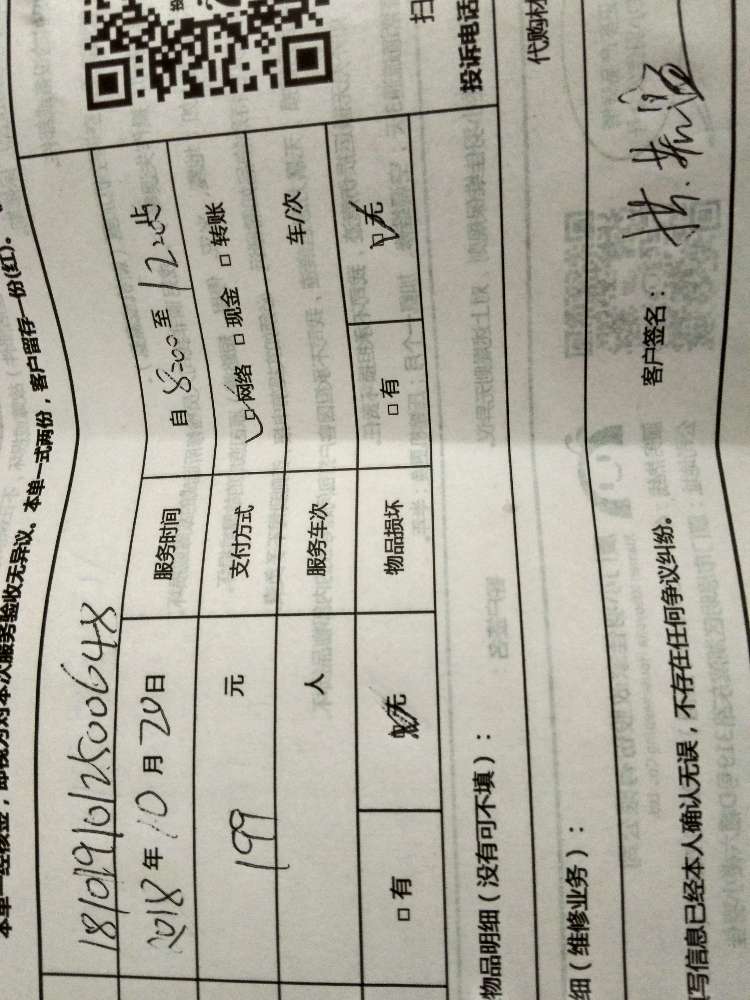 本单一经核查,即视为对本次服务验收无异议。本单一式两份,客户留存一份(红)。
180191012500648X
2018年10月20日 服务时间 自8:00至12:05
199元 支付方式 ☑网络 □现金 □转账
人 服务车次 车/次
□有 ☑无 物品损坏 □有 ☑无
扫
投诉电话
物品明细(没有可不填):
代购材
细(维修业务):
客户签名:
写信息已经本人确认无误,不存在任何争议纠纷。